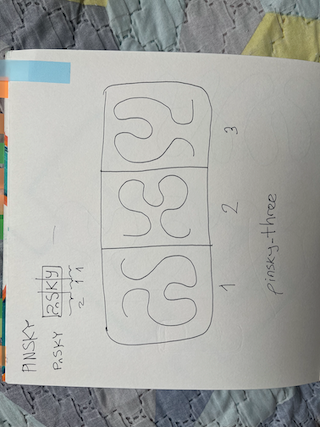 PINSKY
PnSKY
PnSKY
2 1 1
1 2 3
pinsky-three